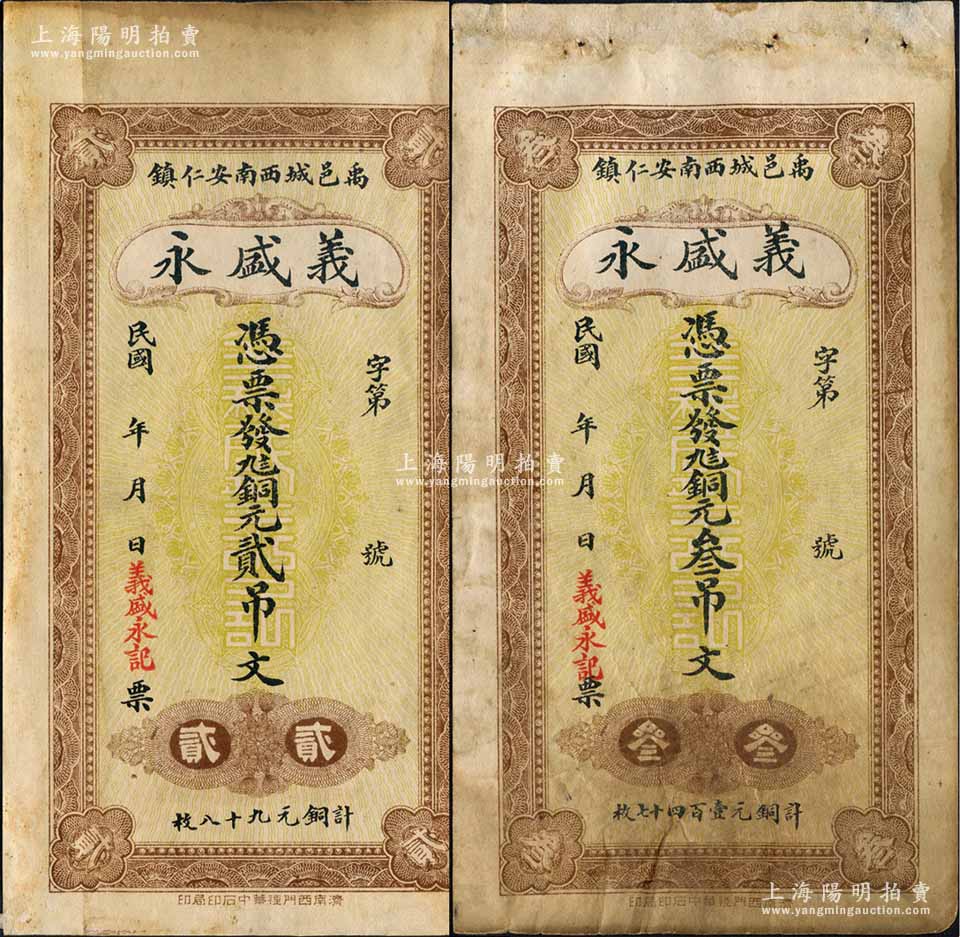 上海陽明拍賣
www.yangmingauction.com
貳
貳
禹邑城西南安仁鎮
義盛永
字第
號
憑票發九八銅元貳吊文
民國
年
月
日
義盛永記
票
貳
貳
計銅元九十八枚
貳
貳
濟南西門裡華中石印局印
上海陽明拍賣
www.yangmingauction.com
叁
叁
禹邑城西南安仁鎮
義盛永
字第
號
憑票發九八銅元叁吊文
民國
年
月
日
義盛永記
票
叁
叁
計銅元壹百四十七枚
西門裡華中石印局印
上海陽明拍賣
www.yangmingauction.com
上海陽明拍賣
www.yangmingauction.com